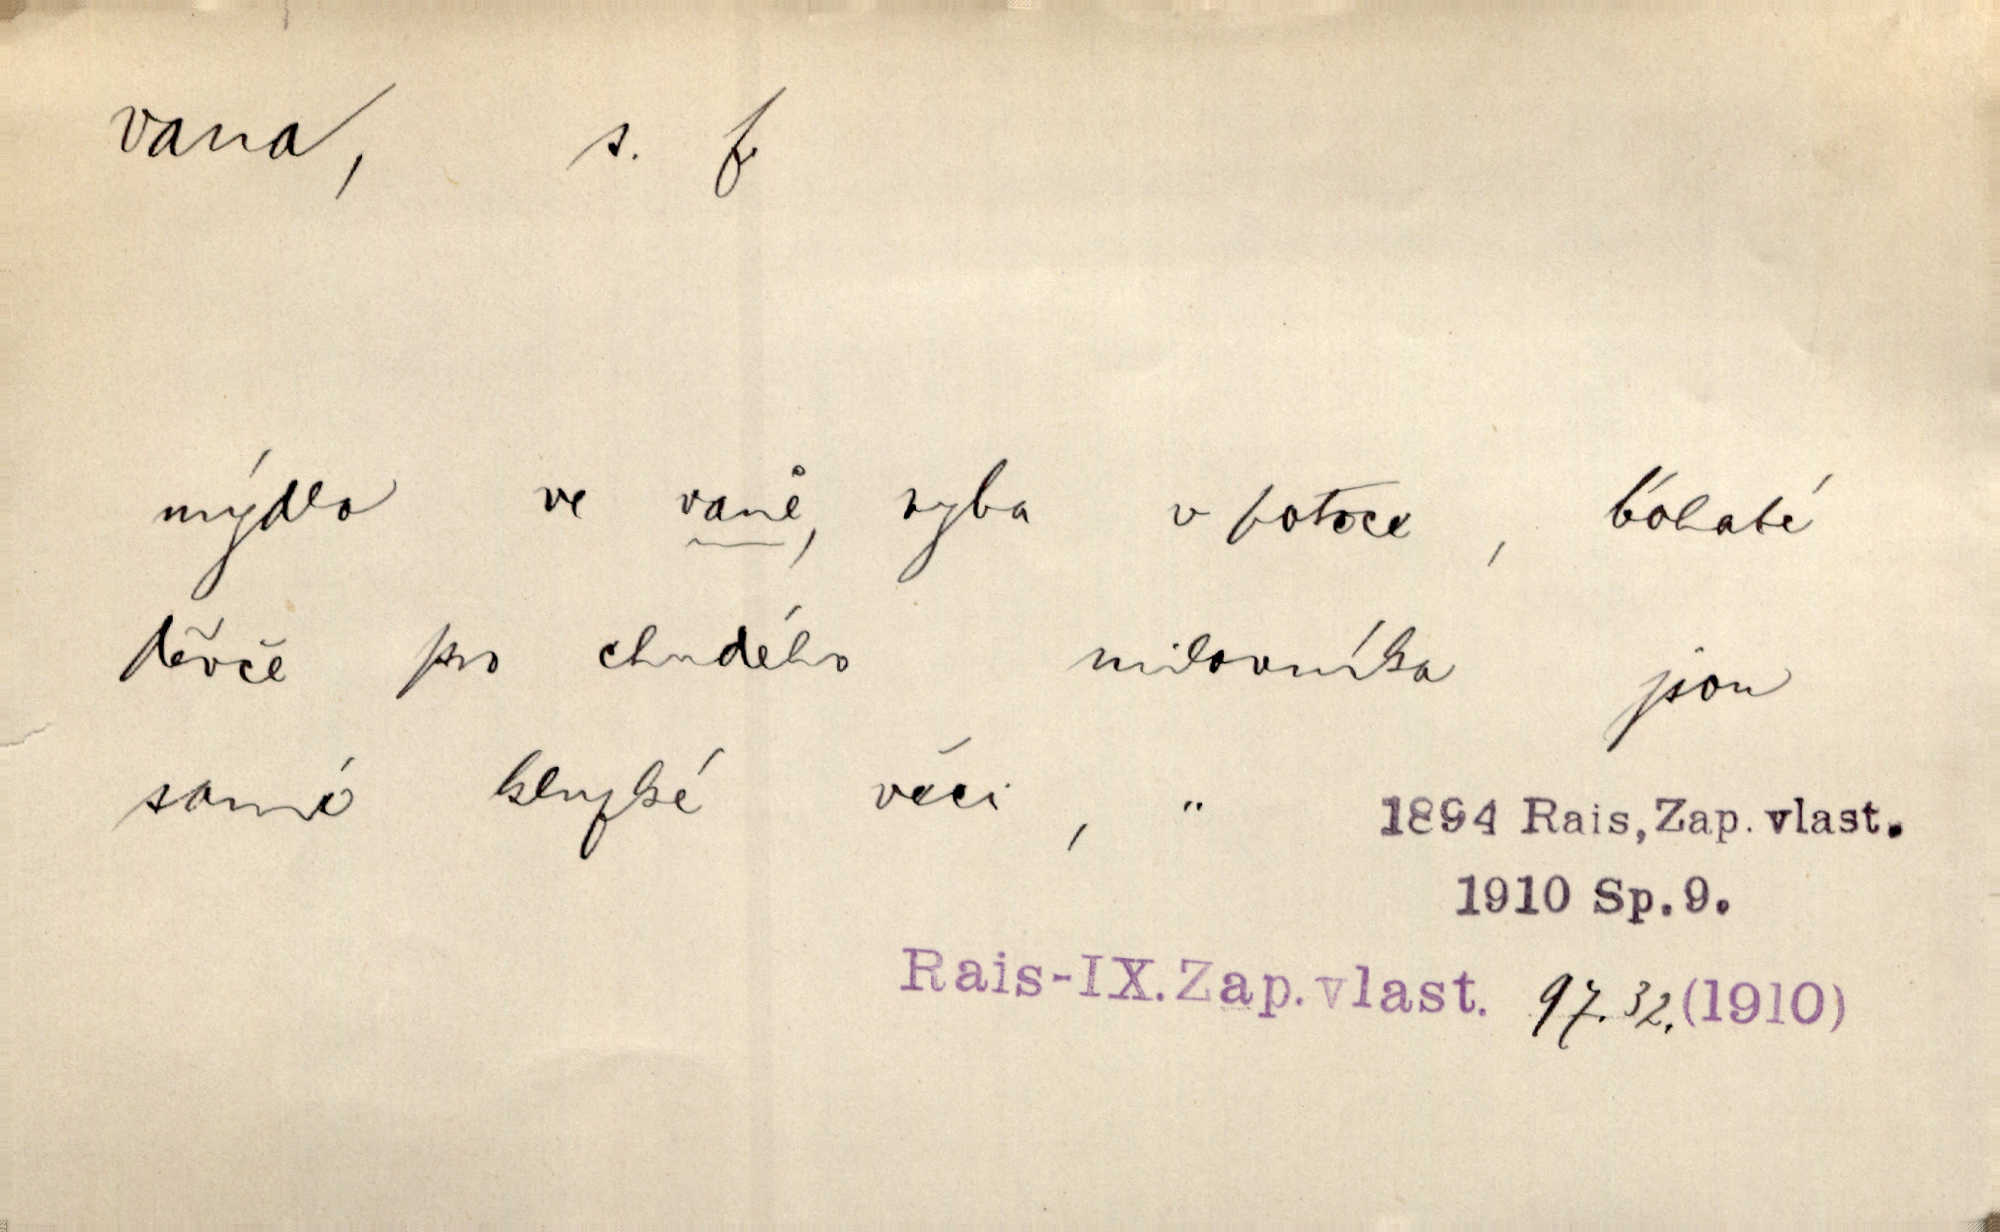 vana, s. f.
mýdlo ve vaně, ryba v potoce, bohaté
děvče pro chudého milovníka jsou
samé kluzké věci, "
1894 Rais, Zap. vlast.
1910 Sp. 9.
Rais-IX. Zap. vlast. 97.32. (1910)